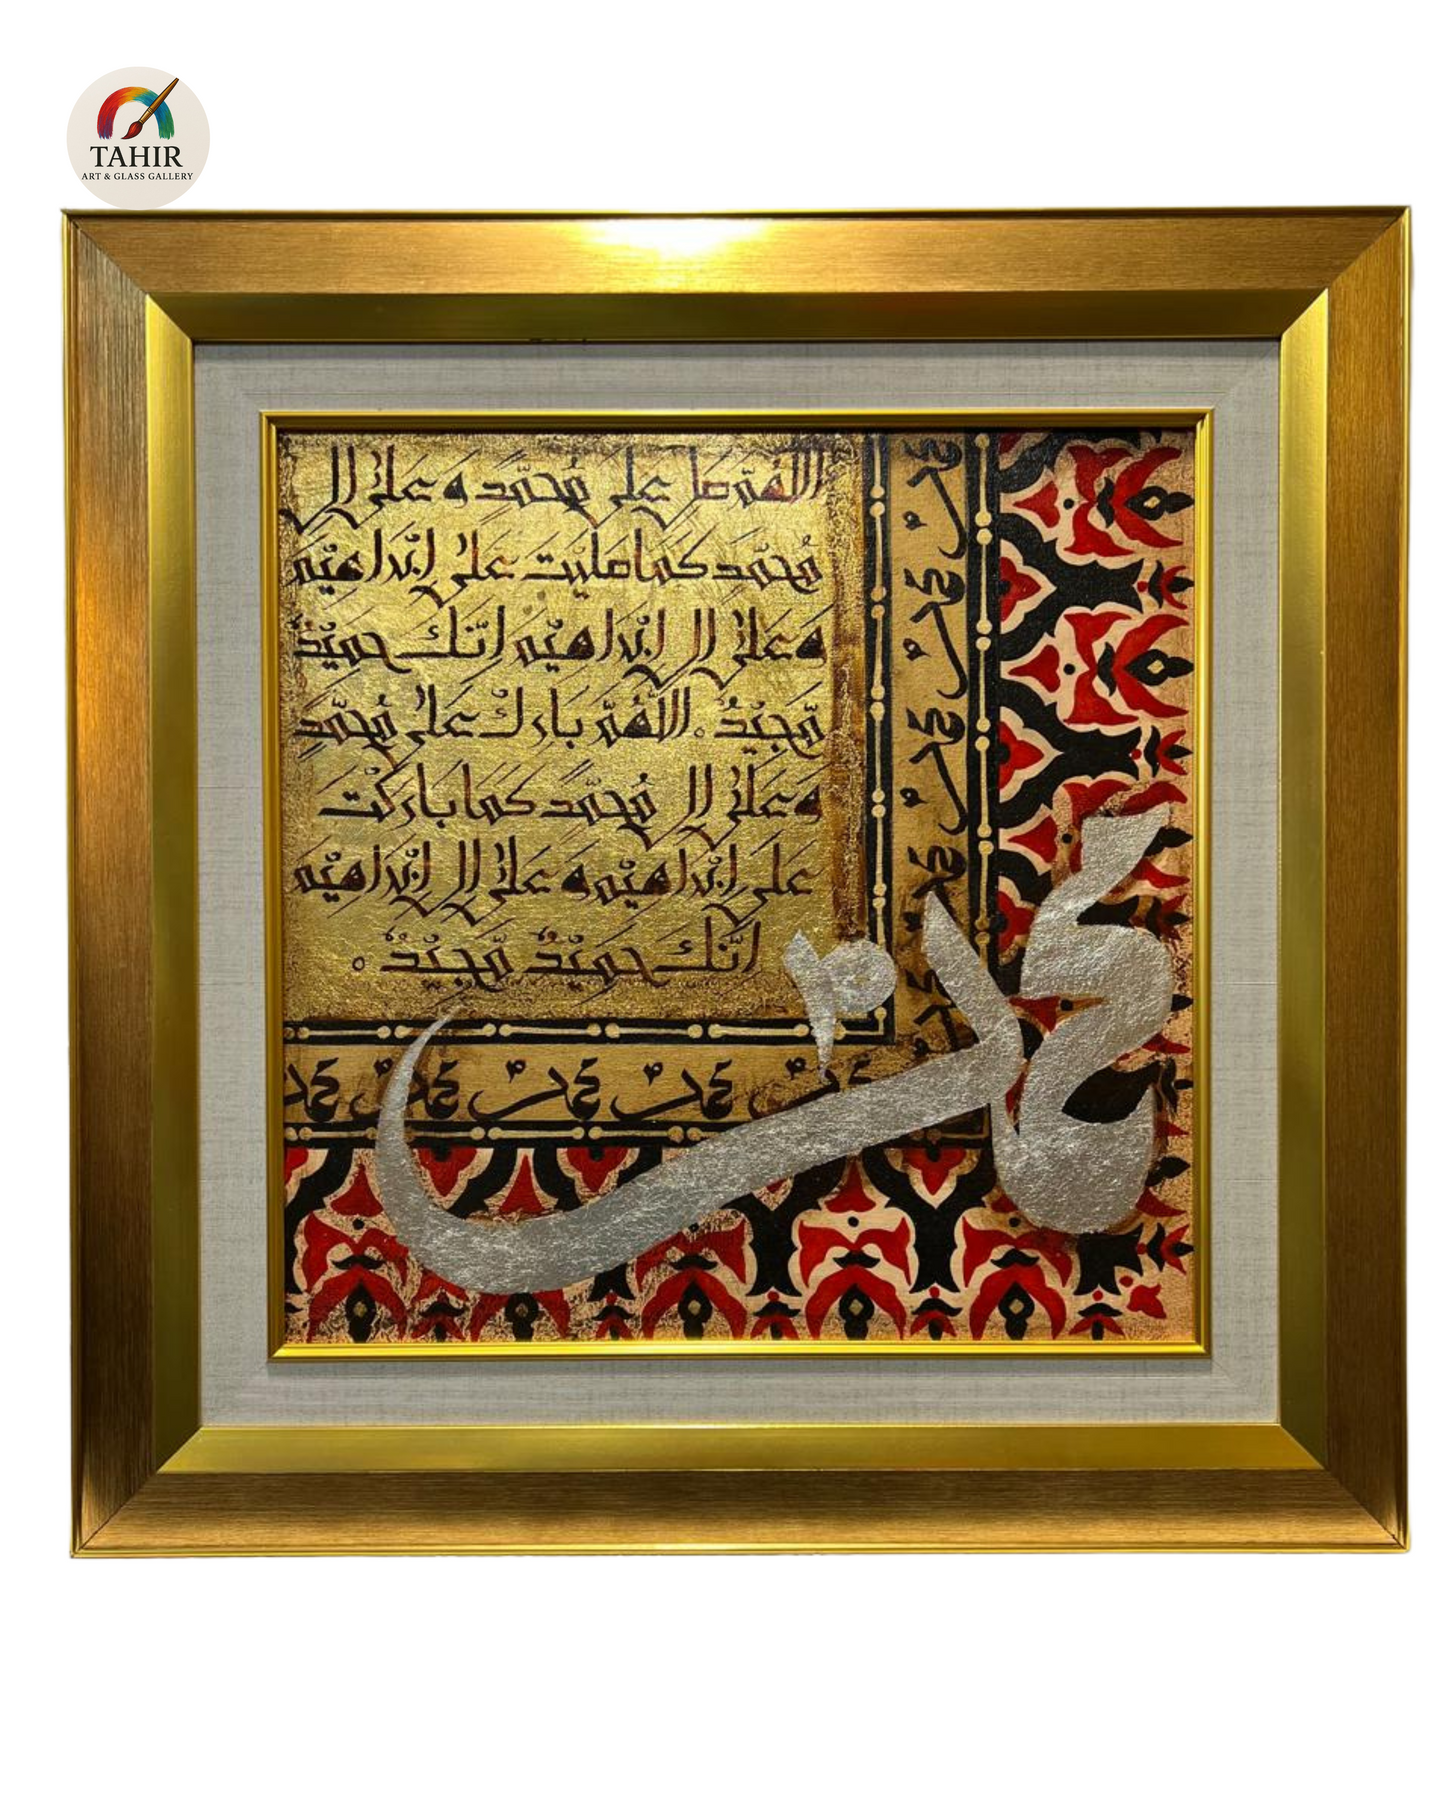 TAHIR
ART & GLASS GALLERY
اللّٰهُمّ صل علىٰ مُحمّد و علىٰ ال
مُحمّد كما صليّت علىٰ ابْراهيْم
وعلىٰ ال ابْراهيْم انّك حميْدٌ
مّجيْدٌ. اللّٰهُمّ بارك علىٰ مُحمّد
وعلىٰ ال مُحمّد كما باركْت
علىٰ ابْراهيْم وعلىٰ ال ابْراهيْم
انّك حميْدٌ مّجيْدٌ.
محمد
محمد
محمد
محمد
محمد محمد محمد محمد
محمد